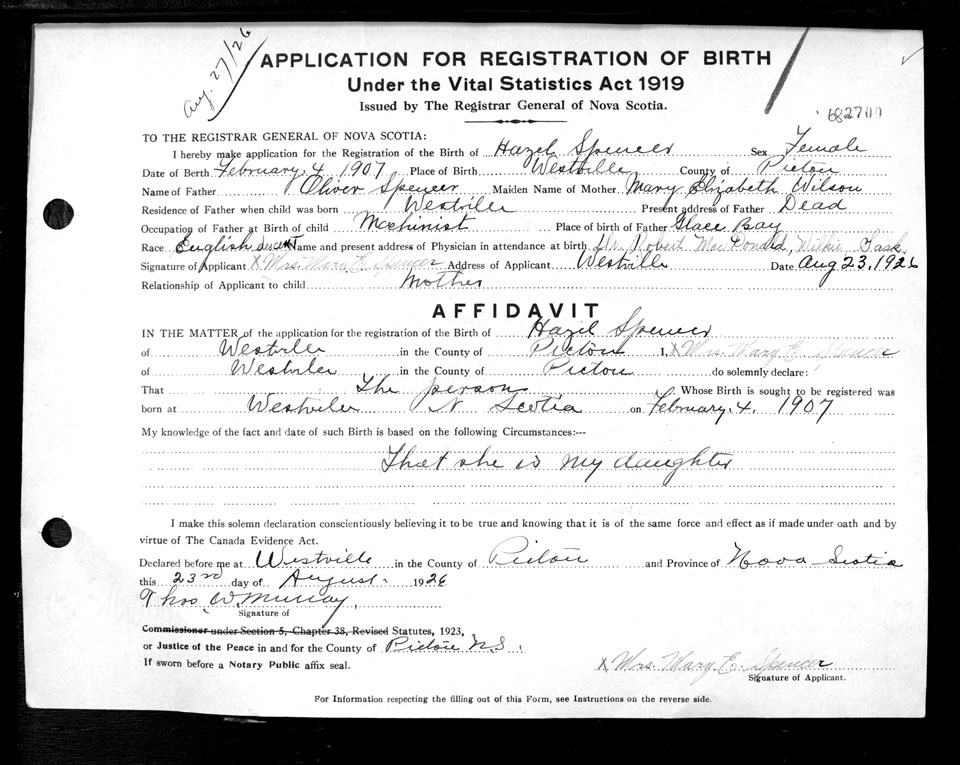 Aug. 27/26
APPLICATION FOR REGISTRATION OF BIRTH
Under the Vital Statistics Act 1919
Issued by The Registrar General of Nova Scotia.
682700
TO THE REGISTRAR GENERAL OF NOVA SCOTIA:
I hereby make application for the Registration of the Birth of Hazel Spencer Sex Female
Date of Berth February. 4. 1907 Place of Birth Westville County of Pictou
Name of Father Oliver Spencer Maiden Name of Mother Mary Elizabeth Wilson
Residence of Father when child was born Westviler Present address of Father Dead
Occupation of Father at Birth of child Mcchinist Place of birth of Father Glace Bay
Race English descent Name and present address of Physician in attendance at birth Robert MacDonald, Wilkie Sask.
Signature of Applicant X Mrs. Mary E. Spencer Address of Applicant Westville Date Aug 23, 1926
Relationship of Applicant to child Mother
AFFIDAVIT
IN THE MATTER of the application for the registration of the Birth of Hazel Spencer
of Westviler in the County of Pictou I, X Mrs. Mary E. Spencer
of Westviler in the County of Pictou do solemnly declare:
That The person Whose Birth is sought to be registered was
born at Westviler N Scotia on February. 4. 1907
My knowledge of the fact and date of such Birth is based on the following Circumstances:---
That she is my daughter
I make this solemn declaration conscientiously believing it to be true and knowing that it is of the same force and effect as if made under oath and by
virtue of The Canada Evidence Act.
Declared before me at Westville in the County of Pictou and Province of Nova Scotia
this 23rd day of August. 1926
Thos. W. Murray,
Signature of
Commissioner under Section 5, Chapter 38, Revised Statutes, 1923,
or Justice of the Peace in and for the County of Pictou N.S.
If sworn before a Notary Public affix seal.
X Mrs. Mary E. Spencer
Signature of Applicant.
For Information respecting the filling out of this Form, see Instructions on the reverse side.